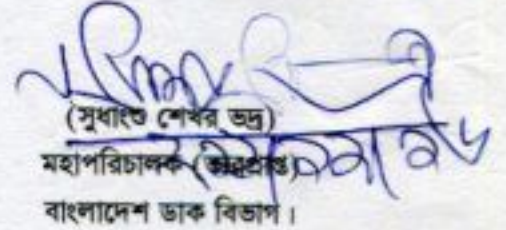 (সুধাংশু শেখর ভদ্র)
মহাপরিচালক (ভারপ্রাপ্ত)
বাংলাদেশ ডাক বিভাগ।